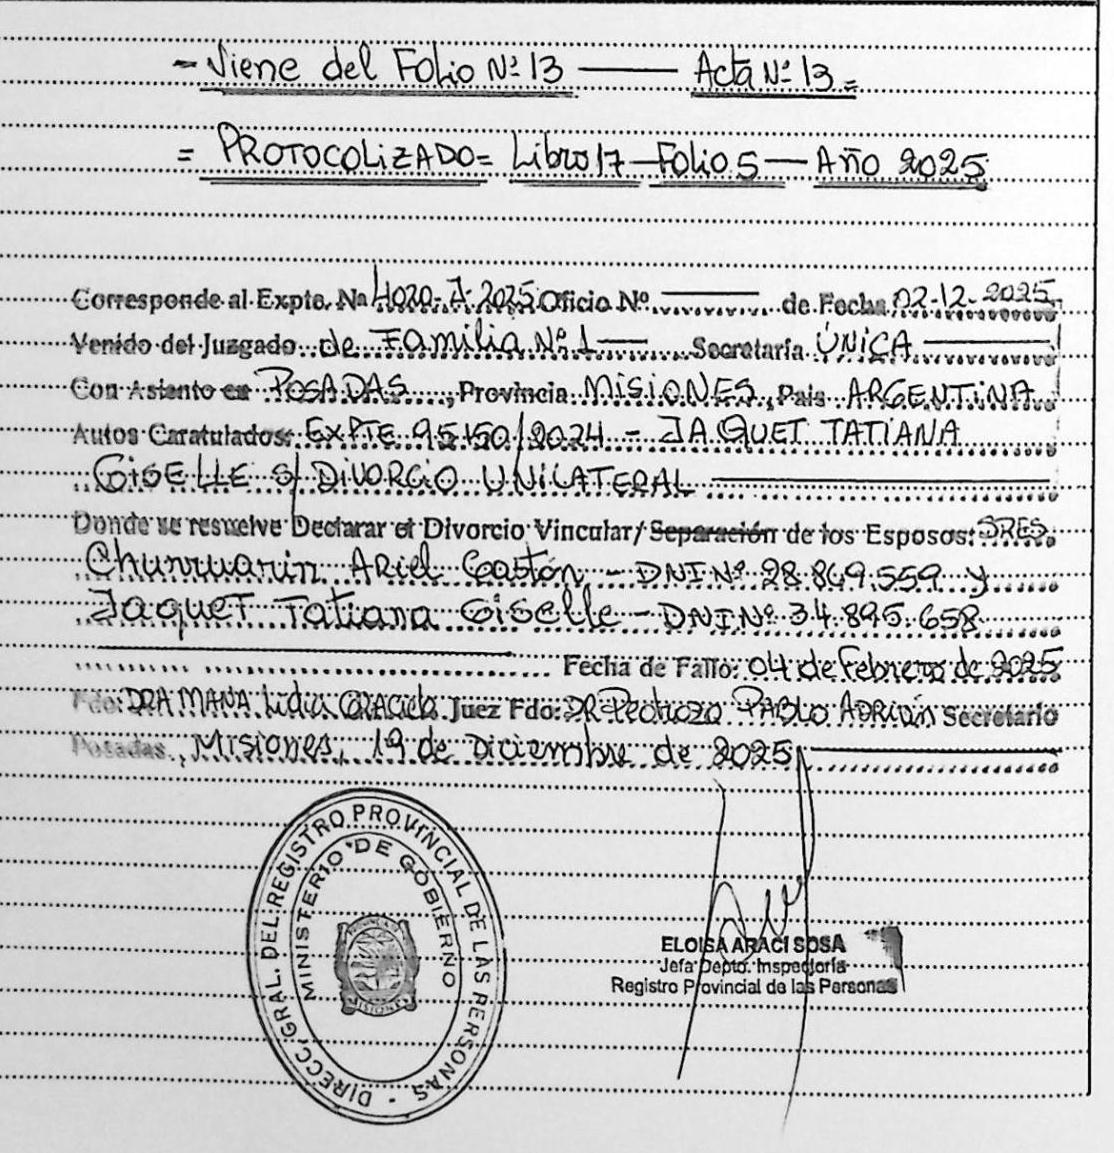 - Viene del Folio Nº 13 — Acta Nº 13 =
= PROTOCOLIZADO = Libro 17 — Folio 5 — Año 2025
Corresponde al Expte. Nº 4020-J-2025 Oficio Nº. ——— de Fecha 02-12-2025
Venido del Juzgado de Familia Nº 1 — Secretaría ÚNICA ———
Con Asiento en POSADAS, Provincia MISIONES, País ARGENTINA
Autos Caratulados: EXPTE 95150/2024 - JAQUET TATIANA
GISELLE S/ DIVORCIO UNILATERAL ———
Donde se resuelve Declarar el Divorcio Vincular/ Separación de los Esposos: SRES.
Churruarin Ariel Gastón - DNI Nº 28.849.559 y
Jaquet Tatiana Giselle - DNI Nº 34.895.658
Fecha de Fallo: 04 de Febrero de 2025
Fdo: DRA Lidia Juez Fdo: DR Pedrozo PABLO ADRIÁN Secretario
Posadas, Misiones, 19 de Diciembre de 2025
DIRECC. GRAL. DEL REGISTRO PROVINCIAL DE LAS PERSONAS -
MINISTERIO DE GOBIERNO
MISIONES
ELOISA ARACI SOSA
Jefa Depto. Inspectoría
Registro Provincial de las Personas